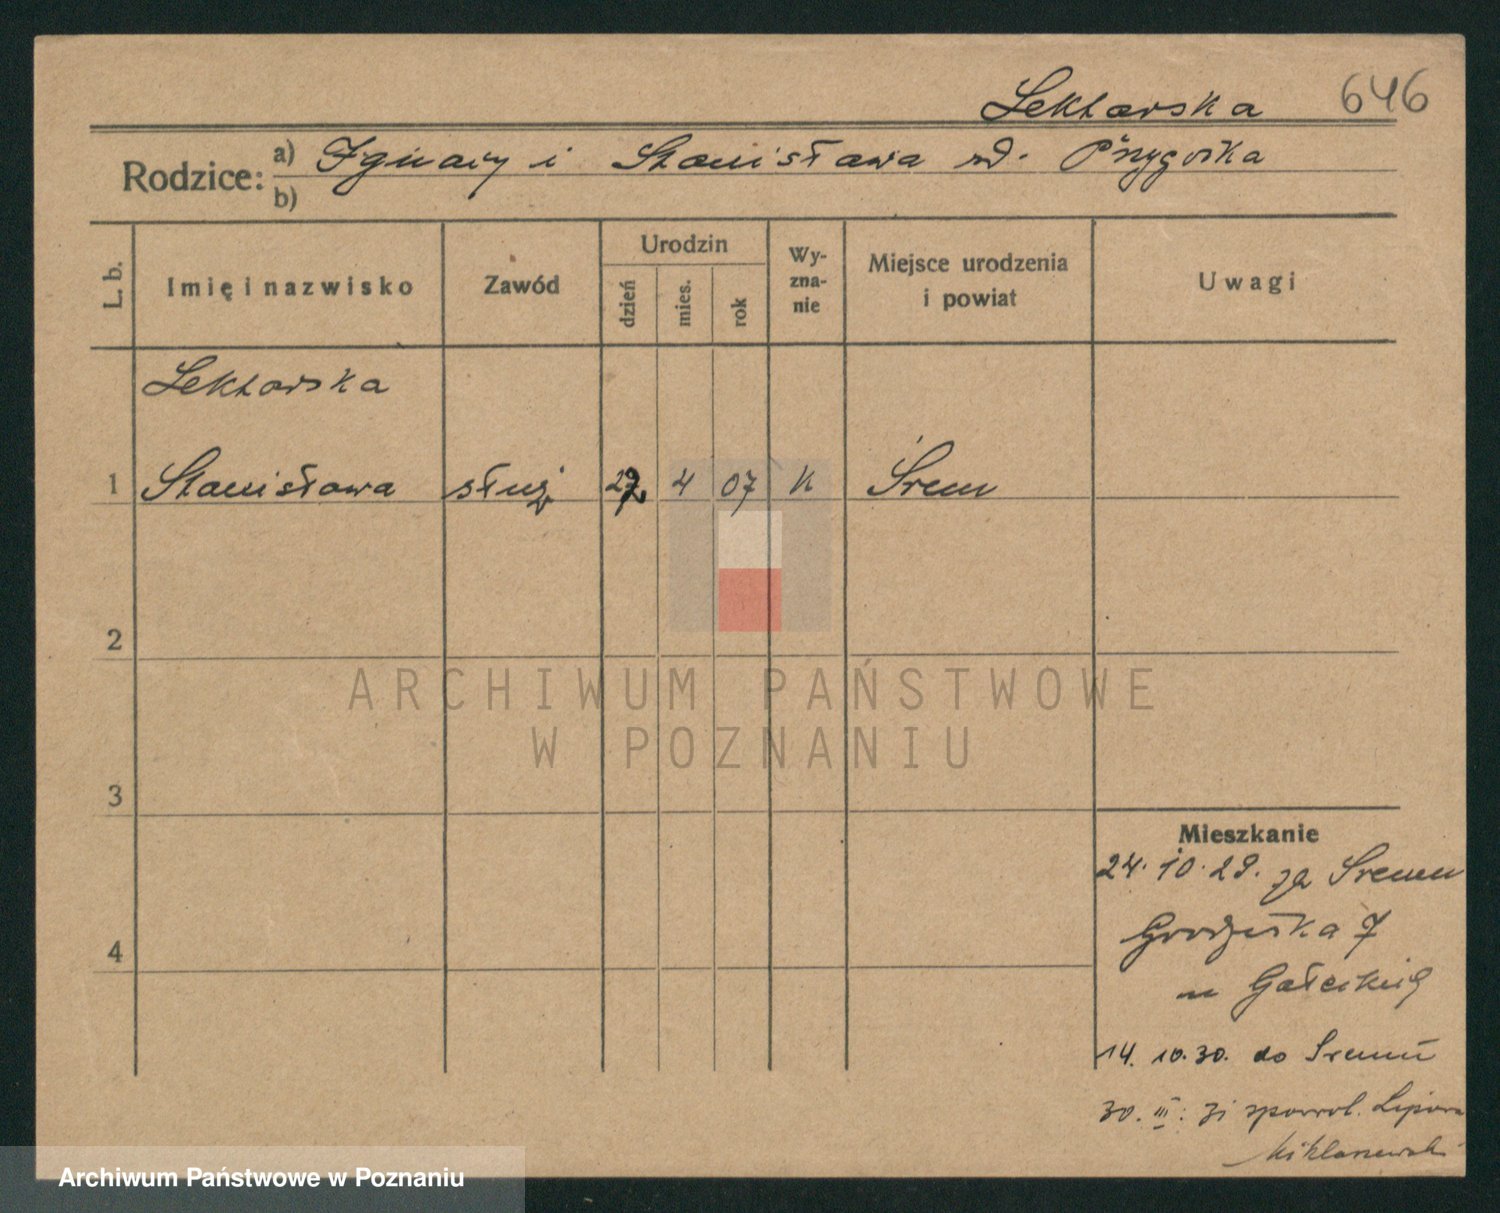 Lektarska 646
Rodzice: a) Ignacy i Stanisława
b)
L. b. Imię i nazwisko Zawód Urodzin dzień mies. rok Wyznanie Miejsce urodzenia i powiat Uwagi
Lektarska
1 Stanisława służ 27 4 07 K Śrem
2
3
4
Mieszkanie
24.10.29. Śremu
Grodziska 7
u Gałeckiej
14. 10. 30. do Śremu
30. III.
ARCHIWUM PAŃSTWOWE
W POZNANIU
Archiwum Państwowe w Poznaniu